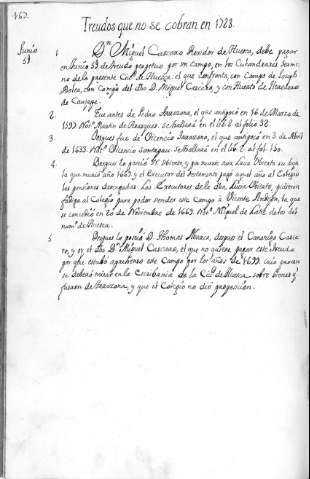 463.
Treudos que no se cobran en 1728.
Junio
51
1 Dn. Miguel Cascaro Rendon de Huesca, debe pagar
en Junio 51 de treudo perpetuo por un campo, en los termi-
no de la presente Ciud. de Huesca: el que confronta, con campo de Joseph
con Campo del dho D. Miguel Cascaro, y con
de
2 Fue antes de Pedro Aranzana, el que antipocó en 16 de Marzo de
1597 Notº Martin de se hallará en el lib. 2 al folio 32.
3 Despues fue de Vicencio Aranzana, el que antipocó en 2 de Abril
de 1633. Notº Vicencio Santapau se hallará en el lib. 2 al fol. 150.
4 Despues lo poseió Vicente, y por muerte suia Lucia Vicente su hija
la que murió año 1663. y el Executor del testamento pagó aquel año al Colegio
las pensiones Los Executores de la dha Lucia Vicente, pidieron
fadiga al Colegio para poder vender este campo á Vicente la que
se concedió en 20 de Noviembre de 1663. Notº Miguel de Lasal de los del
numº de Huesca.
5 Despues lo poseió D. Thomas despues el Canonigo Casca-
ro, y oy el dho Dn. Miguel Cascaro, el que no quiere pagar este treudo
por que estubo aprehenso este Campo por los años de 1699. cuio proceso
se deberá mirar en la Escribania de la Ciud. de Huesca sobre bienes q
fueron de Aranzana, y que el Colegio no dió proposicion.